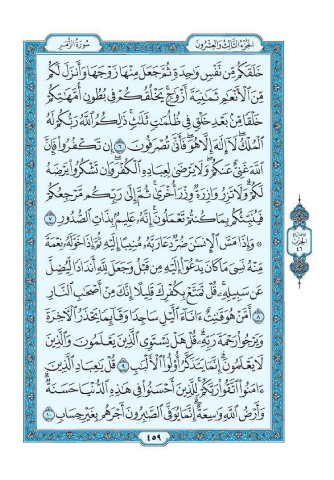 الجزء الثالث والعشرون
سورة الزمر
خَلَقَكُم مِّن نَّفْسٍ وَٰحِدَةٍ ثُمَّ جَعَلَ مِنْهَا زَوْجَهَا وَأَنزَلَ لَكُم
مِّنَ ٱلْأَنْعَٰمِ ثَمَٰنِيَةَ أَزْوَٰجٍ ۚ يَخْلُقُكُمْ فِى بُطُونِ أُمَّهَٰتِكُمْ
خَلْقًا مِّنۢ بَعْدِ خَلْقٍ فِى ظُلُمَٰتٍ ثَلَٰثٍ ۚ ذَٰلِكُمُ ٱللَّهُ رَبُّكُمْ لَهُ
ٱلْمُلْكُ ۖ لَآ إِلَٰهَ إِلَّا هُوَ ۖ فَأَنَّىٰ تُصْرَفُونَ ٦ إِن تَكْفُرُوا۟ فَإِنَّ
ٱللَّهَ غَنِىٌّ عَنكُمْ ۖ وَلَا يَرْضَىٰ لِعِبَادِهِ ٱلْكُفْرَ ۖ وَإِن تَشْكُرُوا۟ يَرْضَهُ
لَكُمْ ۗ وَلَا تَزِرُ وَازِرَةٌ وِزْرَ أُخْرَىٰ ۗ ثُمَّ إِلَىٰ رَبِّكُم مَّرْجِعُكُمْ
فَيُنَبِّئُكُم بِمَا كُنتُمْ تَعْمَلُونَ ۚ إِنَّهُۥ عَلِيمٌۢ بِذَاتِ ٱلصُّدُورِ ٧
۞ وَإِذَا مَسَّ ٱلْإِنسَٰنَ ضُرٌّ دَعَا رَبَّهُۥ مُنِيبًا إِلَيْهِ ثُمَّ إِذَا خَوَّلَهُۥ نِعْمَةً
مِّنْهُ نَسِىَ مَا كَانَ يَدْعُوٓا۟ إِلَيْهِ مِن قَبْلُ وَجَعَلَ لِلَّهِ أَندَادًا لِّيُضِلَّ
عَن سَبِيلِهِۦ ۚ قُلْ تَمَتَّعْ بِكُفْرِكَ قَلِيلًا ۖ إِنَّكَ مِنْ أَصْحَٰبِ ٱلنَّارِ
٨ أَمَّنْ هُوَ قَٰنِتٌ ءَانَآءَ ٱلَّيْلِ سَاجِدًا وَقَآئِمًا يَحْذَرُ ٱلْءَاخِرَةَ
وَيَرْجُوا۟ رَحْمَةَ رَبِّهِۦ ۗ قُلْ هَلْ يَسْتَوِى ٱلَّذِينَ يَعْلَمُونَ وَٱلَّذِينَ
لَا يَعْلَمُونَ ۗ إِنَّمَا يَتَذَكَّرُ أُو۟لُوا۟ ٱلْأَلْبَٰبِ ٩ قُلْ يَٰعِبَادِ ٱلَّذِينَ
ءَامَنُوا۟ ٱتَّقُوا۟ رَبَّكُمْ ۚ لِلَّذِينَ أَحْسَنُوا۟ فِى هَٰذِهِ ٱلدُّنْيَا حَسَنَةٌ ۗ
وَأَرْضُ ٱللَّهِ وَٰسِعَةٌ ۗ إِنَّمَا يُوَفَّى ٱلصَّٰبِرُونَ أَجْرَهُم بِغَيْرِ حِسَابٍ ١٠
الحزب
٤٦
٤٥٩